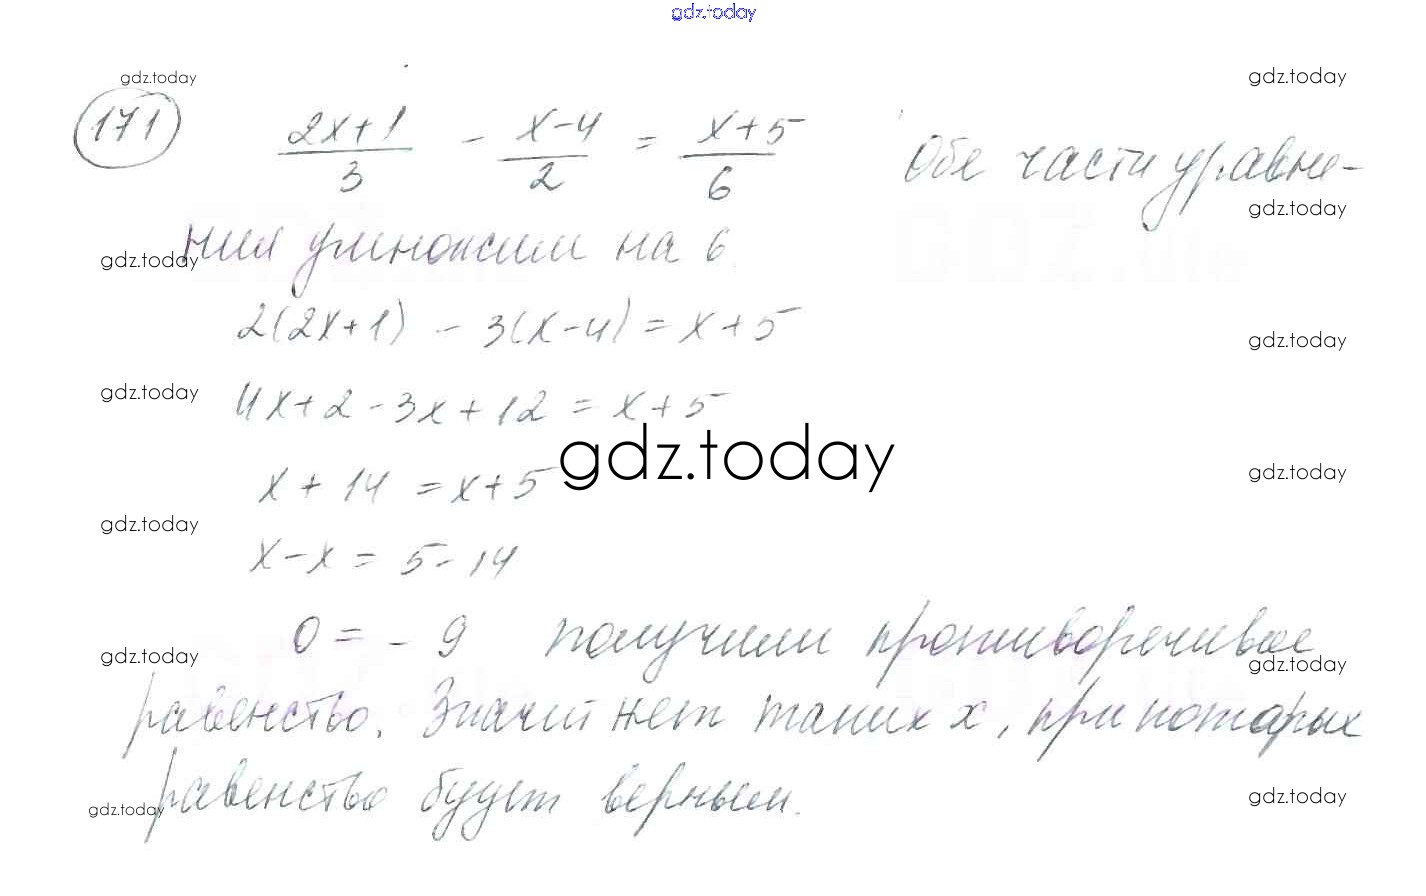 gdz.today
gdz.today
gdz.today
171 (2x+1)/3 - (x-4)/2 = (x+5)/6 Обе части уравне-
gdz.today
ния умножим на 6.
gdz.today
2(2x+1) - 3(x-4) = x+5
gdz.today
gdz.today
4x+2-3x+12 = x+5
gdz.today
x + 14 = x+5
gdz.today
gdz.today
x-x = 5-14
0 = - 9 получили противоречивое
gdz.today
gdz.today
равенство. Значит нет таких x, при которых
равенство будет верным.
gdz.today
gdz.today